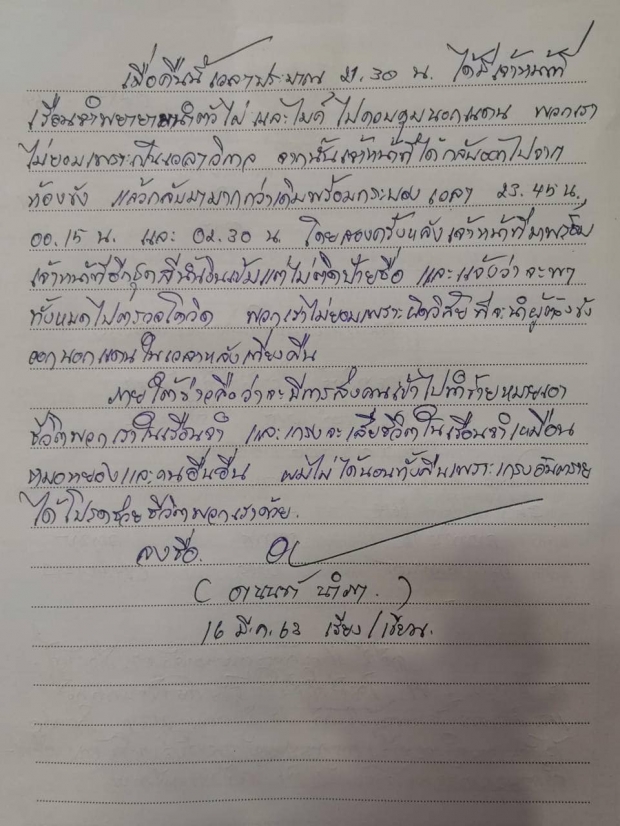 เมื่อคืนนี้เวลาประมาณ 21.30 น. ได้มีเจ้าหน้าที่
เรือนจำพยายามนำตัวไผ่ และไมค์ ไปควบคุมนอกแดน พวกเรา
ไม่ยอมเพราะเป็นเวลาวิกาล จากนั้นเจ้าหน้าที่ได้กลับออกไปจาก
ห้องขัง แล้วกลับมามากกว่าเดิมพร้อมกระบอง เวลา 23.45 น.,
00.15 น. และ 02.30 น. โดยสองครั้งหลังเจ้าหน้าที่มาพร้อม
เจ้าหน้าที่อีกชุดสีน้ำเงินเข้มแต่ไม่ติดป้ายชื่อ และแจ้งว่าจะพา
ทั้งหมดไปตรวจโควิด พวกเราไม่ยอมเพราะผิดวิสัยที่จะนำผู้ต้องขัง
ออกนอกแดนในเวลาหลังเที่ยงคืน
ภายใต้ข่าวลือว่าจะมีการส่งคนเข้าไปทำร้ายหมายเอา
ชีวิตพวกเราในเรือนจำ และเกรงจะเสียชีวิตในเรือนจำเหมือน
หมอหยองและคนอื่นอื่น ผมไม่ได้นอนทั้งคืนเพราะเกรงอันตราย
ได้โปรดช่วยชีวิตพวกเราด้วย.
ลงชื่อ.
( อานนท์ นำภา. )
16 มี.ค. 63 เรียง/เขียน.